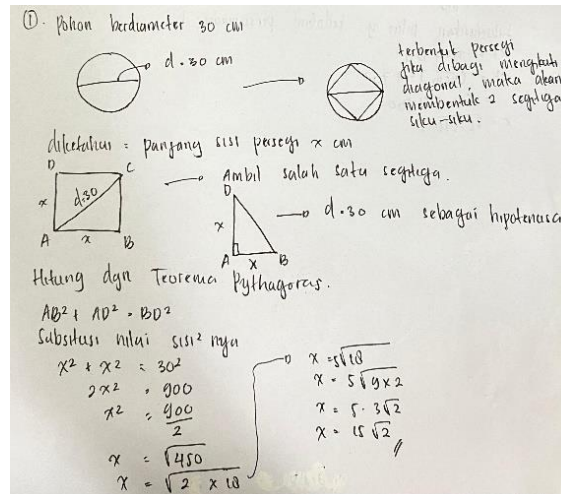 ①. Pohon berdiameter 30 cm
d = 30 cm
terbentuk persegi
jika dibagi mengikuti
diagonal, maka akan
membentuk 2 segitiga
siku-siku.
diketahui = panjang sisi persegi x cm
D
C
x
d=30
A
x
B
Ambil salah satu segitiga.
D
x
A
x
B
d = 30 cm sebagai hipotenusa
Hitung dgn Teorema Pythagoras.
AB² + AD² = BD²
Subsitusi nilai sisi² nya
x² + x² = 30²
2x² = 900
x² = 900
2
x = √450
x = √2 x 18
x = 5√18
x = 5√9x2
x = 5 . 3√2
x = 15 √2 //